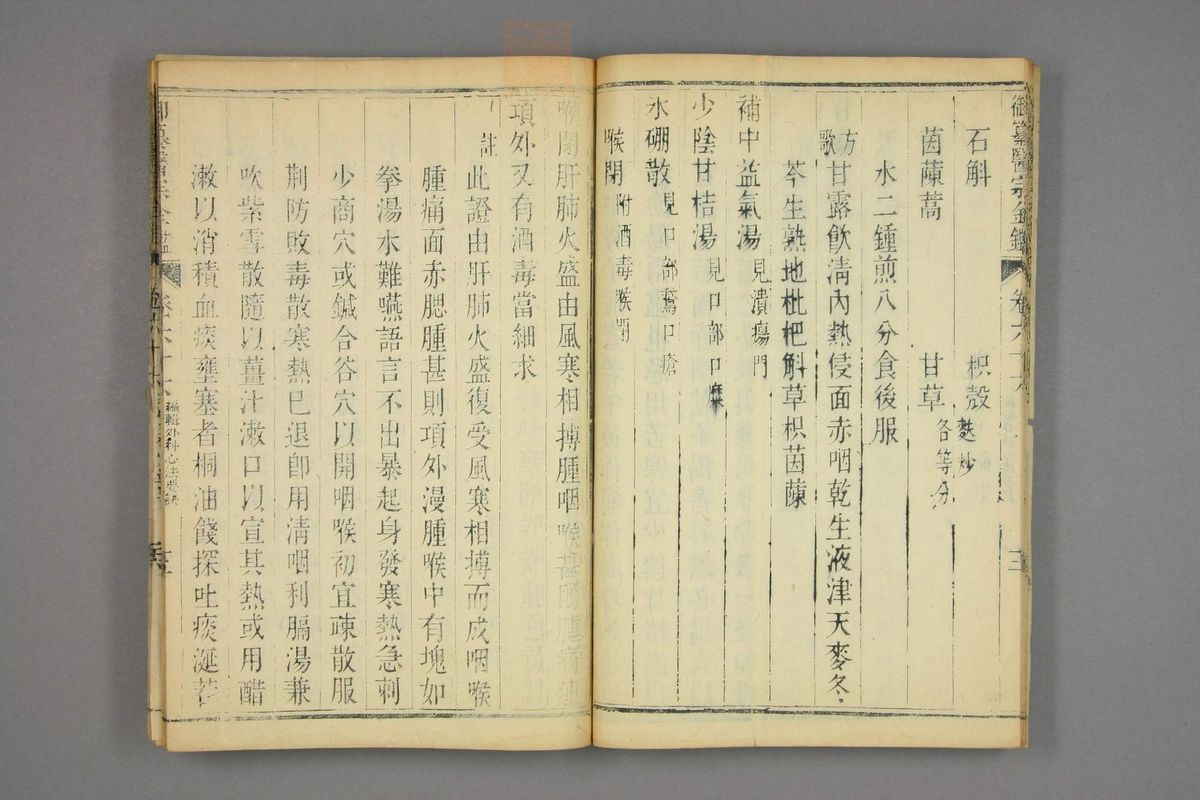 御纂醫宗金鑑 卷六十六
石斛 枳殼 麩炒
茵蔯蒿 甘草 各等分
水二鍾煎八分食後服
方歌 甘露飲清內熱侵面赤咽乾生液津天麥冬
芩生熟地枇杷斛草枳茵蔯
補中益氣湯 見潰瘍門
少陰甘桔湯 見口部口糜
氷硼散 見口部鵞口瘡
喉閉 附酒毒喉閉
喉閉肝肺火盛由風寒相搏腫咽喉甚則腫痛連
項外又有酒毒當細求
註 此證由肝肺火盛復受風寒相搏而成咽喉
腫痛面赤腮腫甚則項外漫腫喉中有塊如
拳湯水難嚥語言不出暴起身發寒熱急刺
少商穴或鍼合谷穴以開咽喉初宜疎散服
荆防敗毒散寒熱已退卽用清咽利膈湯兼
吹紫雪散隨以薑汁漱口以宣其熱或用醋
漱以消積血痰壅塞者桐油餞探吐痰涎若
御纂醫宗金鑑 卷六十六 編輯外科心法要訣